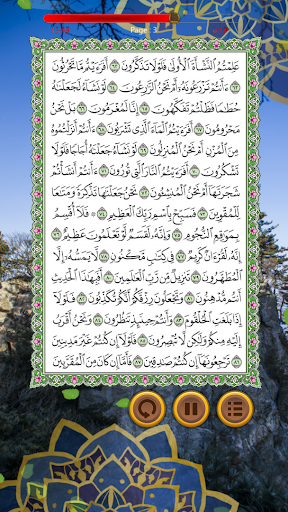 Page: 3
عَلِمْتُمُ ٱلنَّشْأَةَ ٱلْأُولَىٰ فَلَوْلَا تَذَكَّرُونَ ٦٢ أَفَرَءَيْتُم مَّا تَحْرُثُونَ
٦٣ ءَأَنتُمْ تَزْرَعُونَهُۥٓ أَمْ نَحْنُ ٱلزَّٰرِعُونَ ٦٤ لَوْ نَشَآءُ لَجَعَلْنَٰهُ
حُطَٰمًا فَظَلْتُمْ تَفَكَّهُونَ ٦٥ إِنَّا لَمُغْرَمُونَ ٦٦ بَلْ نَحْنُ
مَحْرُومُونَ ٦٧ أَفَرَءَيْتُمُ ٱلْمَآءَ ٱلَّذِى تَشْرَبُونَ ٦٨ ءَأَنتُمْ أَنزَلْتُمُوهُ
مِنَ ٱلْمُزْنِ أَمْ نَحْنُ ٱلْمُنزِلُونَ ٦٩ لَوْ نَشَآءُ جَعَلْنَٰهُ أُجَاجًا فَلَوْلَا
تَشْكُرُونَ ٧٠ أَفَرَءَيْتُمُ ٱلنَّارَ ٱلَّتِى تُورُونَ ٧١ ءَأَنتُمْ أَنشَأْتُمْ
شَجَرَتَهَآ أَمْ نَحْنُ ٱلْمُنشِـُٔونَ ٧٢ نَحْنُ جَعَلْنَٰهَا تَذْكِرَةً وَمَتَٰعًا
لِّلْمُقْوِينَ ٧٣ فَسَبِّحْ بِٱسْمِ رَبِّكَ ٱلْعَظِيمِ ٧٤ ۞ فَلَآ أُقْسِمُ
بِمَوَٰقِعِ ٱلنُّجُومِ ٧٥ وَإِنَّهُۥ لَقَسَمٌ لَّوْ تَعْلَمُونَ عَظِيمٌ ٧٦
إِنَّهُۥ لَقُرْءَانٌ كَرِيمٌ ٧٧ فِى كِتَٰبٍ مَّكْنُونٍ ٧٨ لَّا يَمَسُّهُۥٓ إِلَّا
ٱلْمُطَهَّرُونَ ٧٩ تَنزِيلٌ مِّن رَّبِّ ٱلْعَٰلَمِينَ ٨٠ أَفَبِهَٰذَا ٱلْحَدِيثِ
أَنتُم مُّدْهِنُونَ ٨١ وَتَجْعَلُونَ رِزْقَكُمْ أَنَّكُمْ تُكَذِّبُونَ ٨٢ فَلَوْلَآ
إِذَا بَلَغَتِ ٱلْحُلْقُومَ ٨٣ وَأَنتُمْ حِينَئِذٍ تَنظُرُونَ ٨٤ وَنَحْنُ أَقْرَبُ
إِلَيْهِ مِنكُمْ وَلَٰكِن لَّا تُبْصِرُونَ ٨٥ فَلَوْلَآ إِن كُنتُمْ غَيْرَ مَدِينِينَ
٨٦ تَرْجِعُونَهَآ إِن كُنتُمْ صَٰدِقِينَ ٨٧ فَأَمَّآ إِن كَانَ مِنَ ٱلْمُقَرَّبِينَ